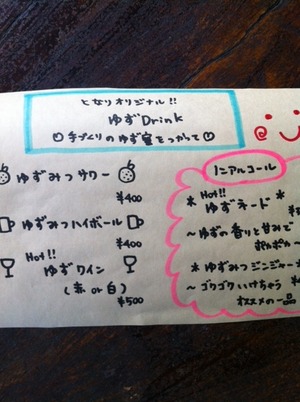 となりオリジナル!!
ゆずDrink
手づくりのゆず蜜をつかって
ゆずみつサワー
¥400
ゆずみつハイボール
¥400
Hot!!
ゆずワイン
(赤 or 白)
¥500
ノンアルコール
Hot!!
* ゆずネード *
~ゆずの香りと甘みで
* ゆずみつジンジャー *
~ゴクゴクいけちゃう
オススメの一品